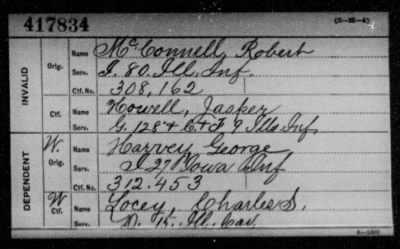 417834
(3- -4)
INVALID
Orig.
Name McConnell, Robert
Serv. I. 80. Ill. Inf.
Ctf. No. 308,162
Ctf.
Name Howell, Jasper
Serv. G. 128 & C & F 9 Ills Inf
DEPENDENT
W. Orig.
Name Harvey George
Serv. I 27 Iowa Inf
Ctf. No. 312.453
W Ctf.
Name Locey, Charles S.
Serv. 15. Ill. Cav.